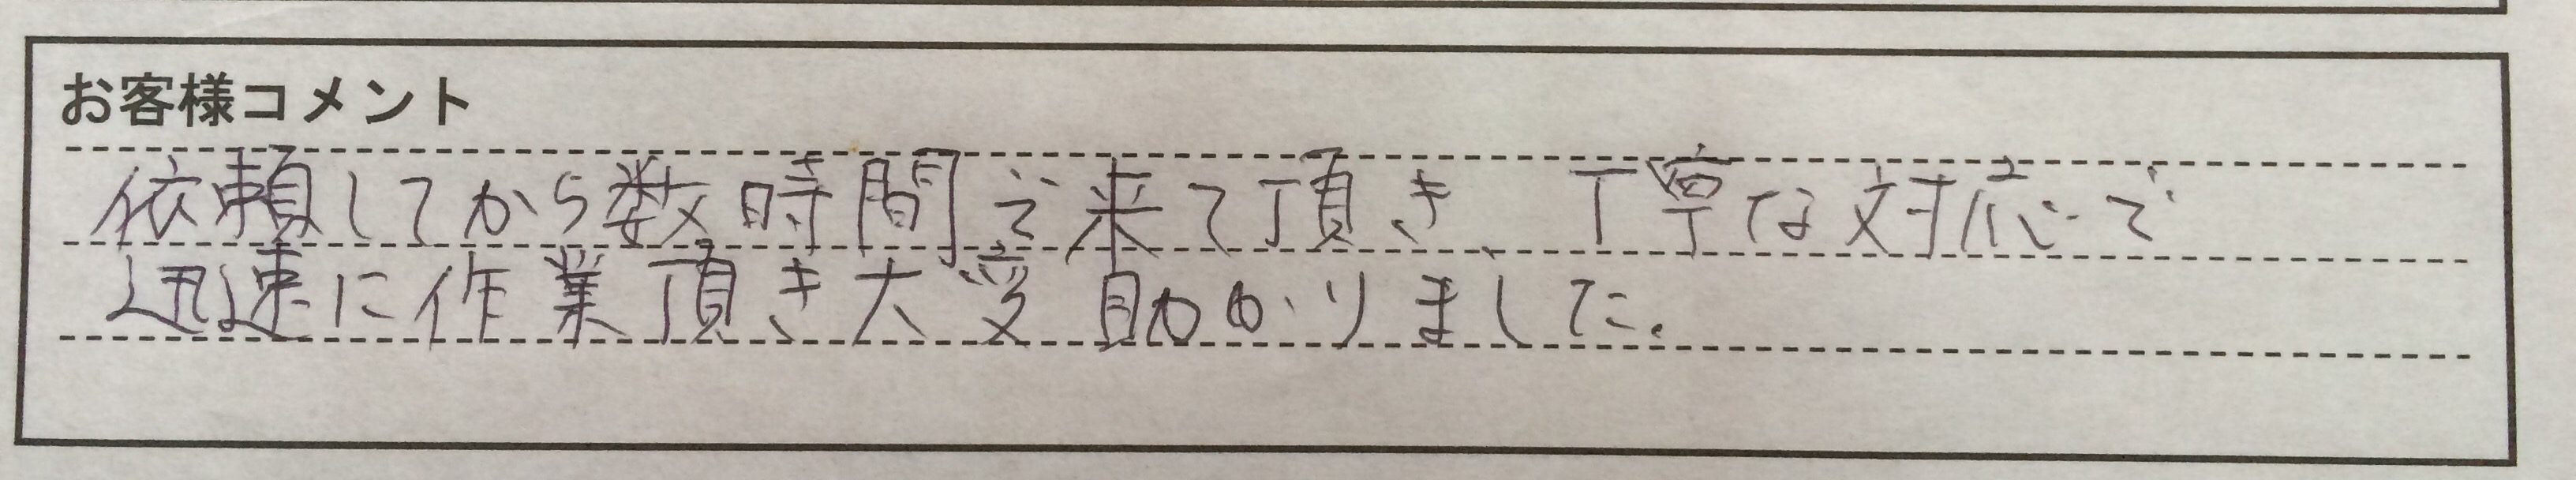 お客様コメント
依頼してから数時間で来て頂き、丁寧な対応で
迅速に作業頂き大変助かりました。